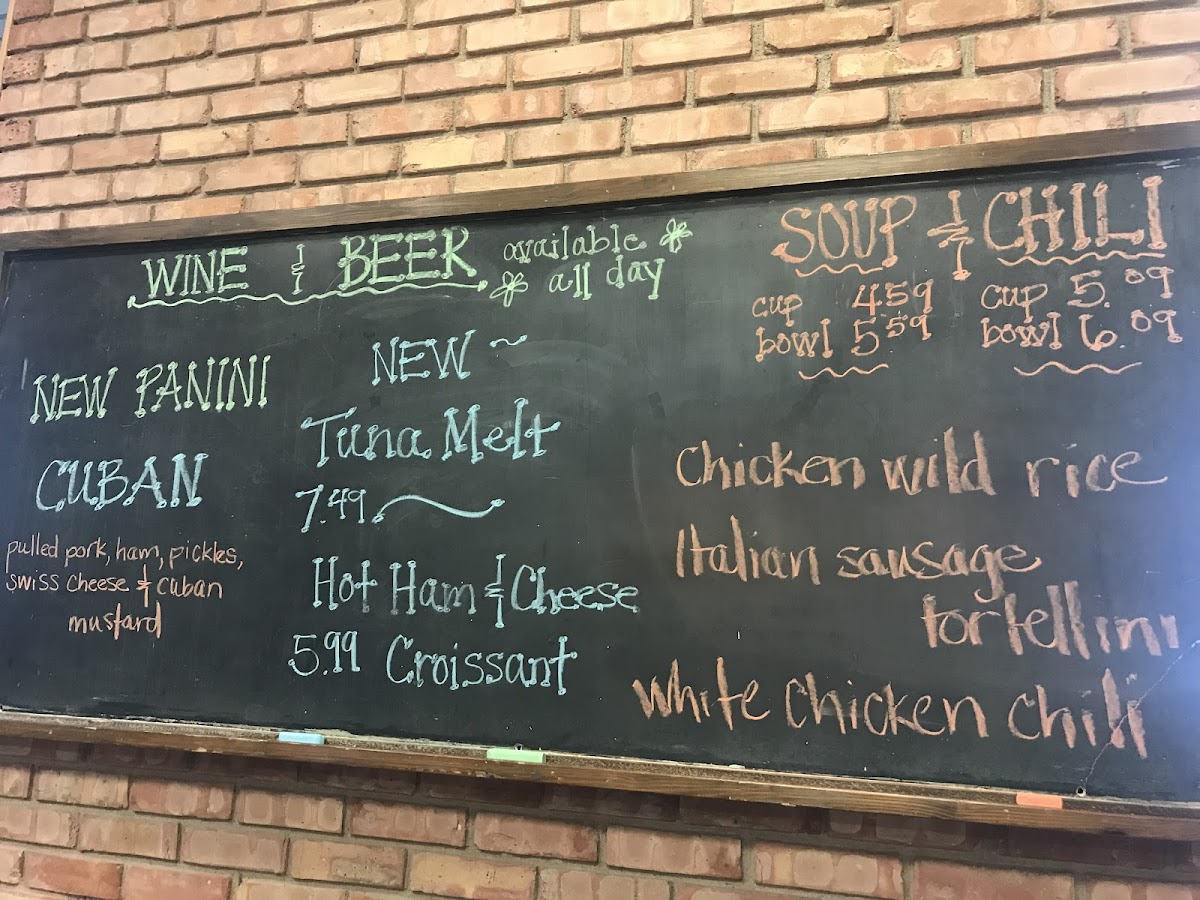 WINE & BEER available
all day
NEW PANINI
CUBAN
pulled pork, ham, pickles,
swiss cheese & cuban
mustard
NEW ~
Tuna Melt
7.49
Hot Ham & Cheese
5.99 Croissant
SOUP & CHILI
cup 4.59 cup 5.09
bowl 5.59 bowl 6.09
Chicken wild rice
Italian sausage
tortellini
white chicken chili